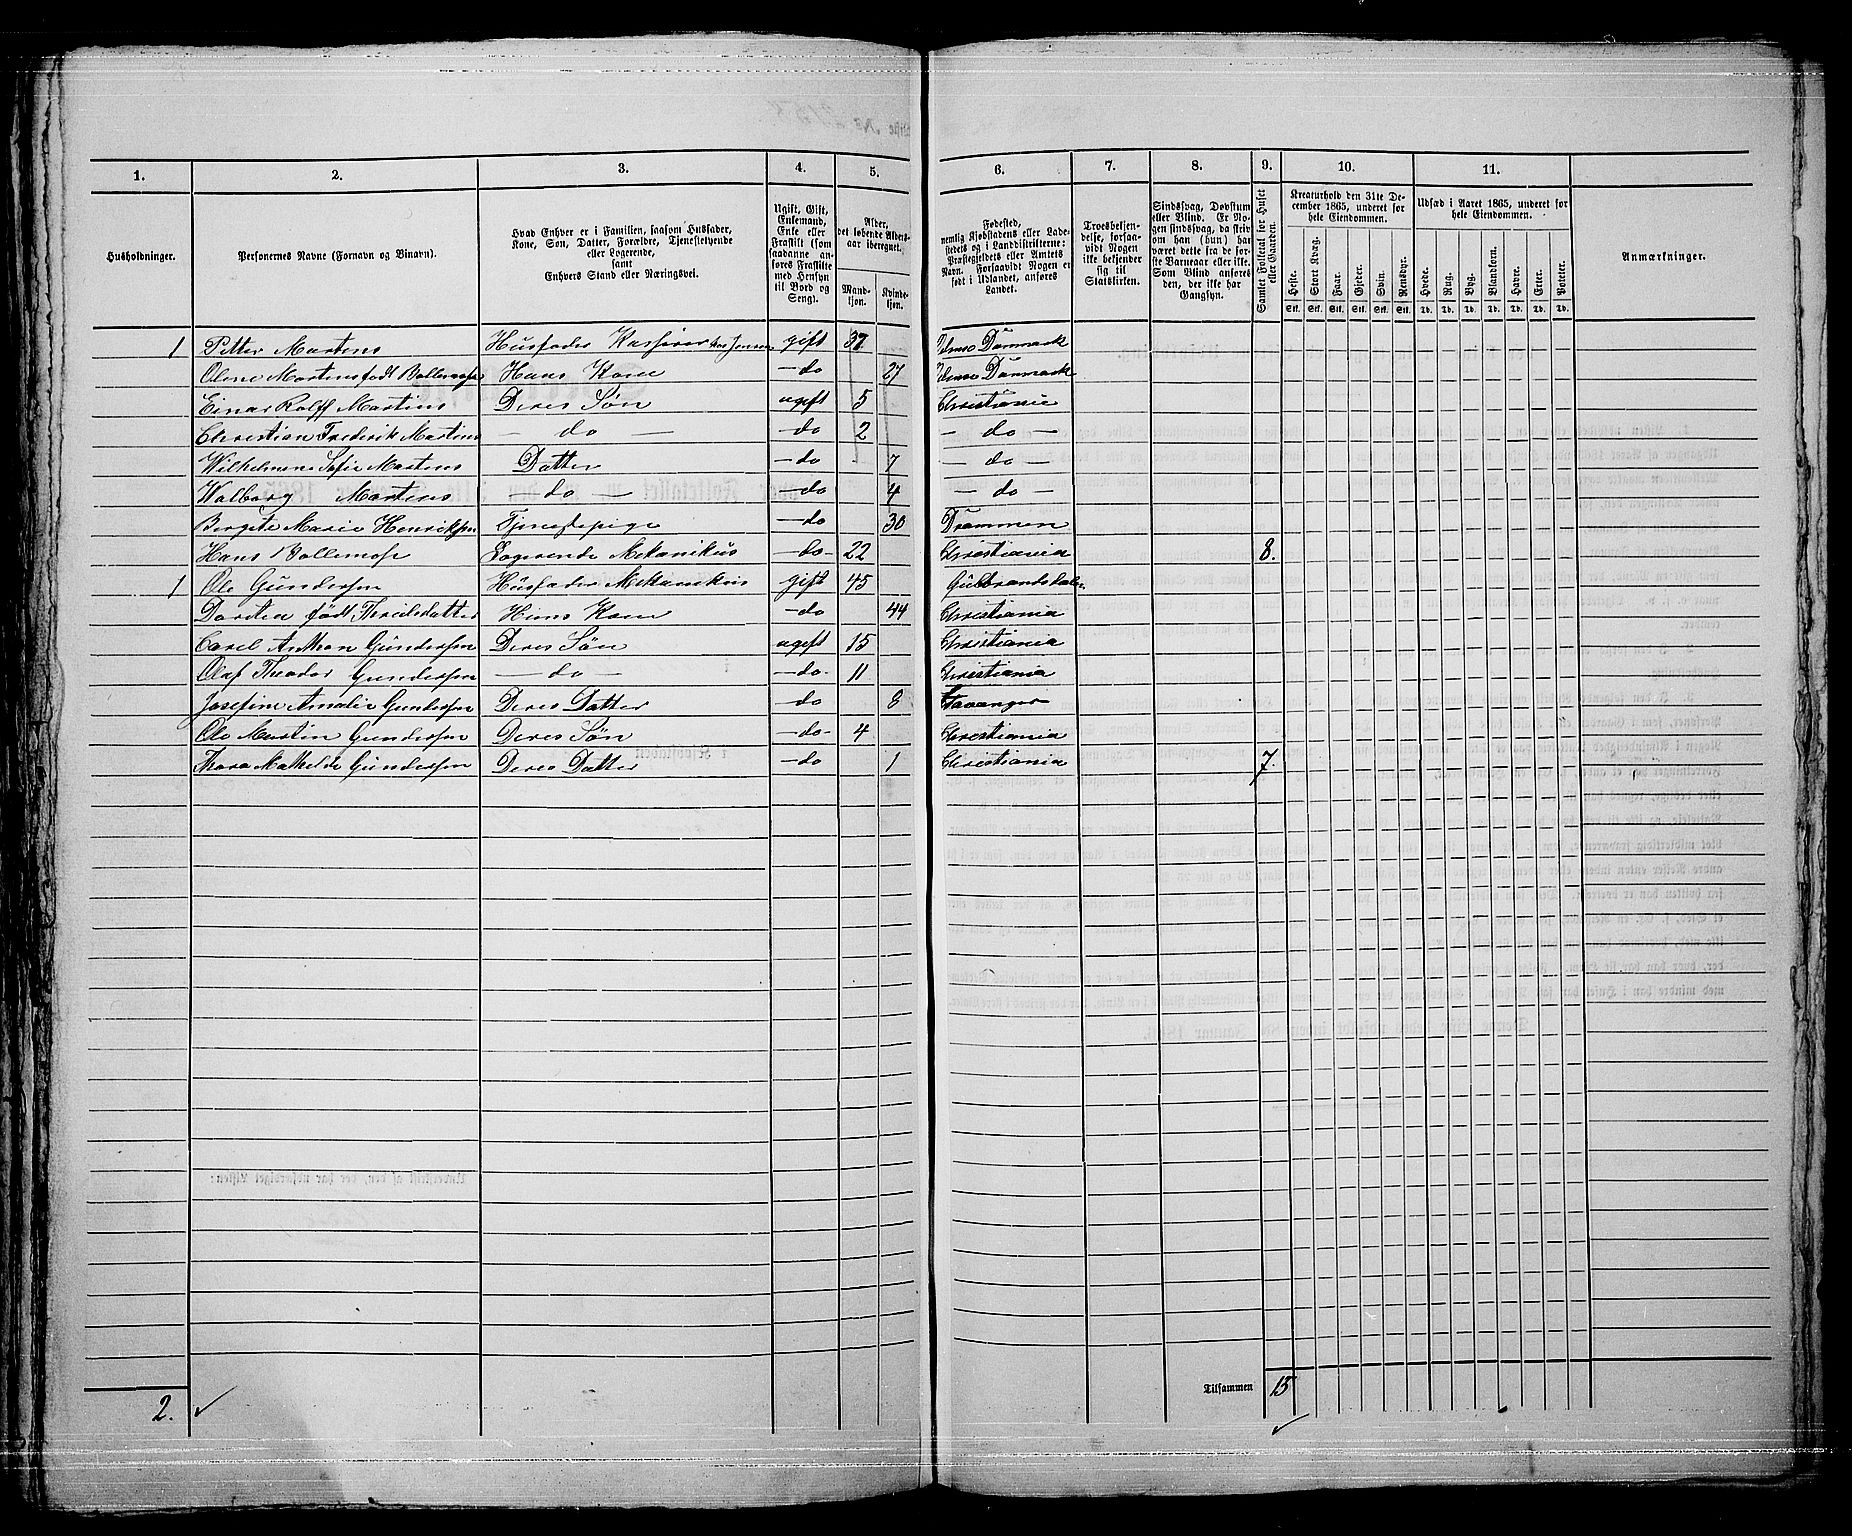 1. 2. 3. 4. 5. 6. 7. 8. 9. 10. 11.
Husholdninger.
Personernes Navne (Fornavn og Binavn).
Hvad Enhver er i Familien, saasom Husfader, Kone, Søn, Datter, Forældre, Tjenestetyende eller Logerende, samt Enhvers Stand eller Næringsvei.
Ugift, Gift, Enkemand, Enke eller Fraskilt (som saadanne anføres Fraskilte med Hensyn til Bord og Seng).
Alder, det løbende Aldersaar iberegnet.
Mandkjøn. Kvindekjøn.
Fødested, nemlig Kjøbstadens eller Ladestedets og i Landdistrikterne: Præstegjeldets eller Amtets Navn. Forsaavidt Nogen er født i Udlandet, anføres Landet.
Troesbekjendelse, forsaavidt Nogen ikke bekjender sig til Statskirken.
Sindssvag, Døvstum eller Blind. Er Nogen sindssvag, da skriv om han (hun) har været dette fra de første Barneaar eller ikke. Som Blind anføres den, der ikke har Gangsyn.
Samlet Folketal for Huset eller Gaarden.
Kreaturhold den 31te December 1865, underet for hele Eiendommen.
Heste. Stort Kvæg. Faar. Gjeder. Svin. Rensdyr.
Stk. Stk. Stk. Stk. Stk. Stk.
Udsæd i Aaret 1865, underet for hele Eiendommen.
Hvede. Rug. Byg. Blandkorn. Havre. Erter. Poteter.
Td. Td. Td. Td. Td. Td. Td.
Anmærkninger.
1 Petter Martens Husfader Kasserer hos Jensen gift 37 Danmark
Oline Martens født Bollemose Hans Kone – do 27 Danmark
Einar Rolff Martens Deres Søn ugift 5 Christiania
Christian Frederik Martens – do – – do 2 – do –
Wilhelmine Sofie Martens Datter – do 7 – do –
Walborg Martens – do – – do 4 – do –
Bergete Marie Henriksen Tjenestepige – do 30 Drammen
Hans Bollemose Logerende Mekanikus – do – 22 Christiania 8.
1 Ole Gundersen Husfader Mekanikus gift 45 Gulbrandsdalen
Dortea født Thorilsdatter Hans Kone – do 44 Christiania
Carel Anthon Gundersen Deres Søn ugift 15 Christiania
Olaf Theodor Gundersen – do – – do – 11 Christiania
Josefine Amalie Gundersen Deres Datter – do 8 Stavanger
Ole Martin Gundersen Deres Søn – do – 4 Christiania
Thora Mathilde Gundersen Deres Datter – do 1 Christiania 7.
2. Tilsammen 15